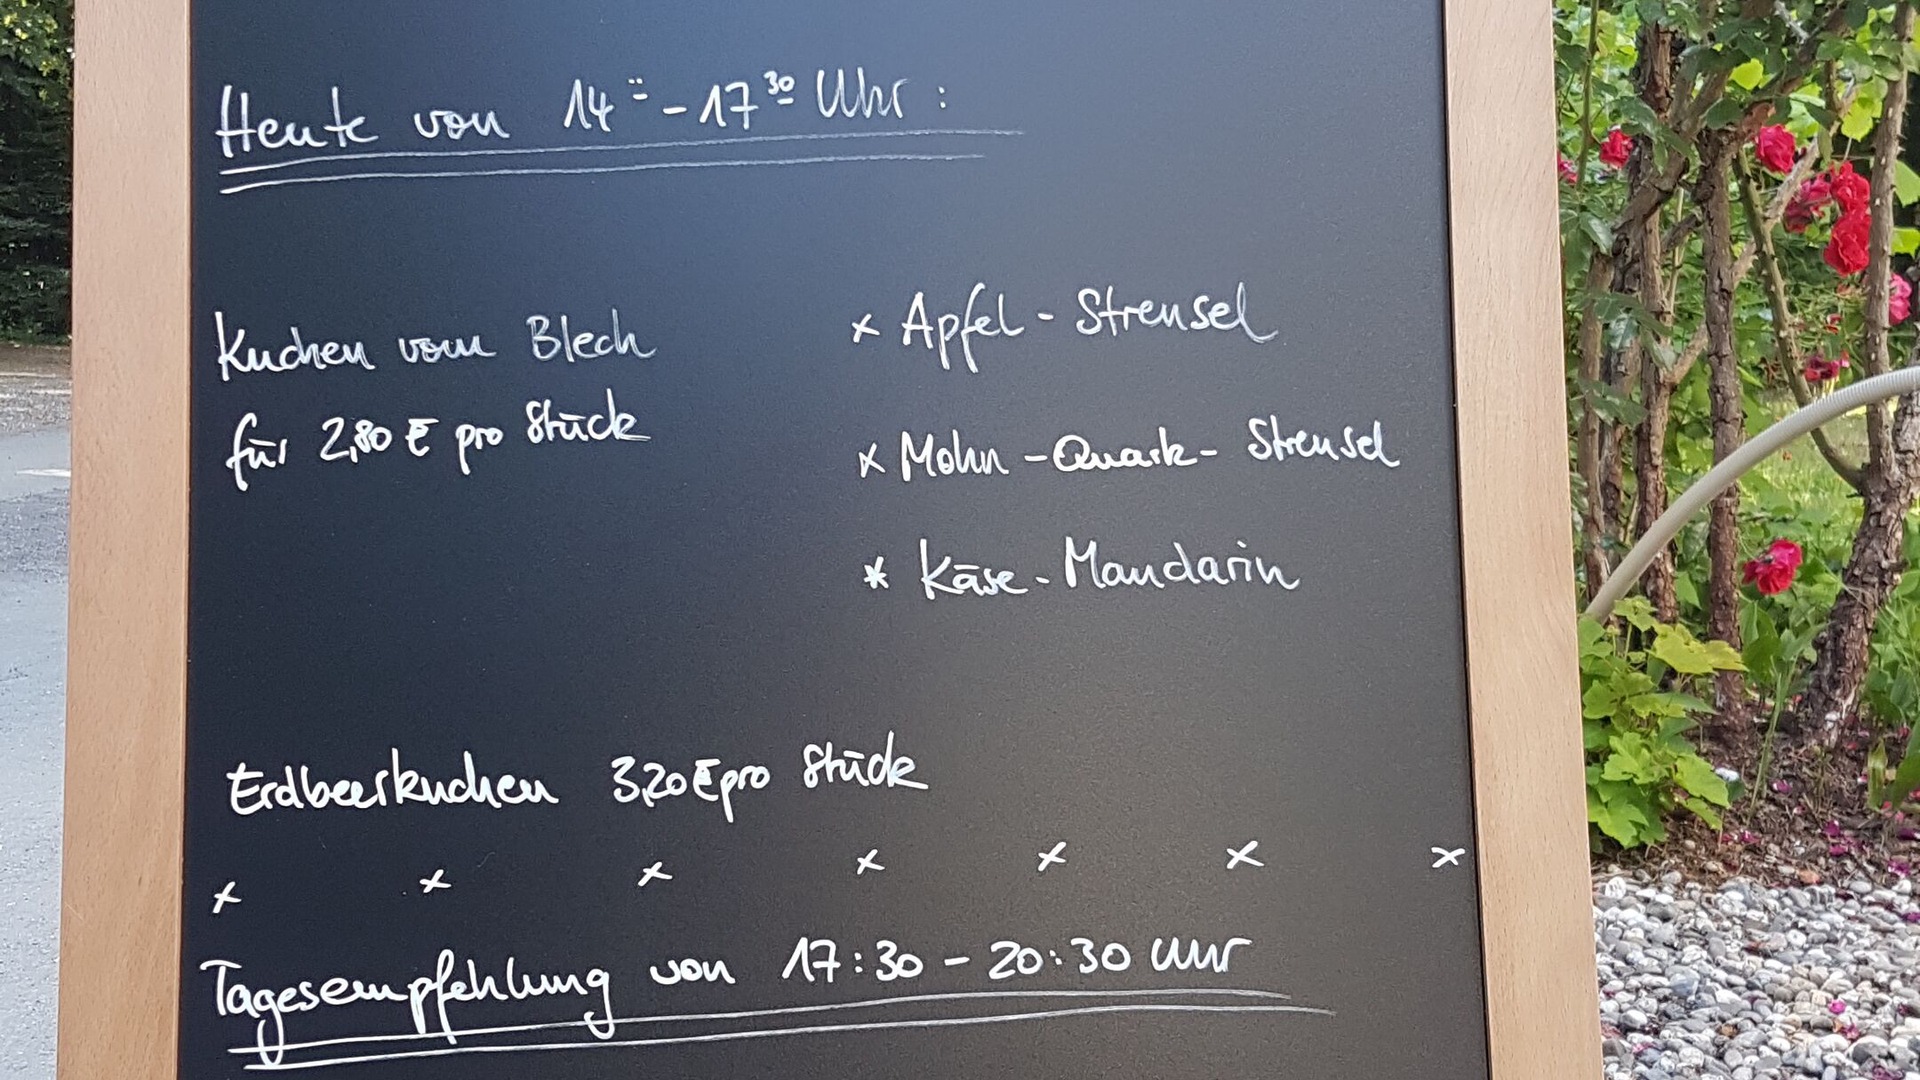 Heute von 14:00 - 17:30 Uhr:
Kuchen vom Blech
für 2,80 € pro Stück
x Apfel - Streusel
x Mohn - Quark - Streusel
* Käse - Mandarin
Erdbeerkuchen 3,20 € pro Stück
x x x x x x x
Tagesempfehlung von 17:30 - 20:30 Uhr